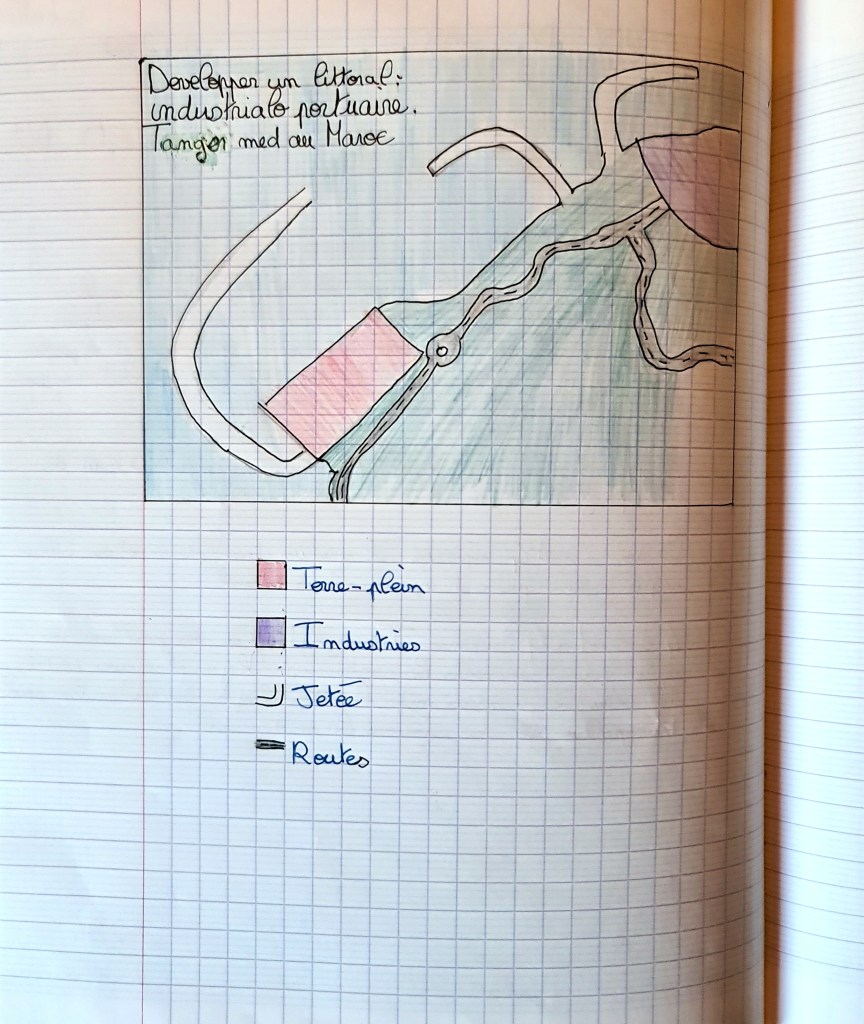 Developper un littoral:
industrialo portuaire.
Tanger med au Maroc
Terre-plein
Industries
Jetée
Routes